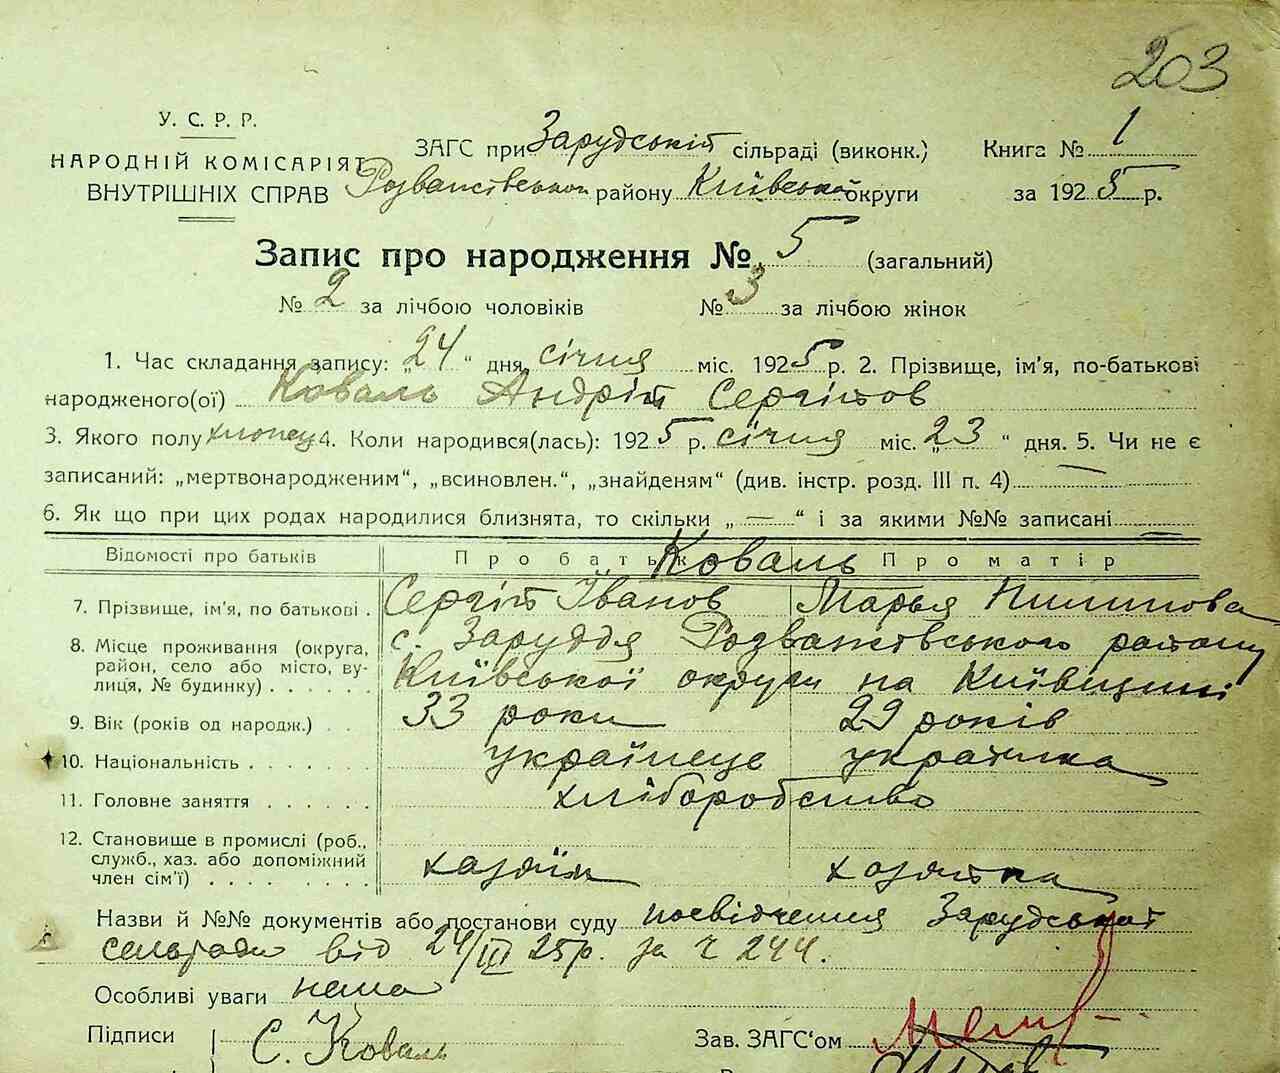 203
У. С. Р. Р.
НАРОДНІЙ КОМІСАРІЯТ
ВНУТРІШНІХ СПРАВ
ЗАГС при Зарудській сільраді (виконк.) Книга № 1
Розважівському району Київської округи за 1925 р.
Запис про народження № 5 (загальний)
№ 2 за лічбою чоловіків № 3 за лічбою жінок
1. Час складання запису: „24“ дня січня міс. 1925 р. 2. Прізвище, ім'я, по-батькові
народженого(ої) Коваль Андрій Сергійов
3. Якого полу хлопець 4. Коли народився(лась): 1925 р. січня міс. „23“ дня. 5. Чи не є
записаний: „мертвонародженим“, „всиновлен.“, „знайденям“ (див. інстр. розд. III п. 4) —
6. Як що при цих родах народилися близнята, то скільки „ — “ і за якими №№ записані —
Відомості про батьків Про батьк Коваль Про матір
7. Прізвище, ім'я, по батькові . Сергій Іванов Марья Пилипова
8. Місце проживання (округа, район, село або місто, вулиця, № будинку) . . . . . . с. Заруддя Розважівського району
Київської округи на Київщині
9. Вік (років од народж.) . . 33 роки 29 років
10. Національність . . . . . . українець українка
11. Головне заняття . . . . . . хліборобство
12. Становище в промислі (роб., служб., хаз. або допоміжний член сім'ї) . . . . . . . . хазяїн хазяйка
Назви й №№ документів або постанови суду посвідчення Зарудської
сельради від 24/III 25р. за ч 244.
Особливі уваги нема
Підписи С. Коваль Зав. ЗАГС'ом